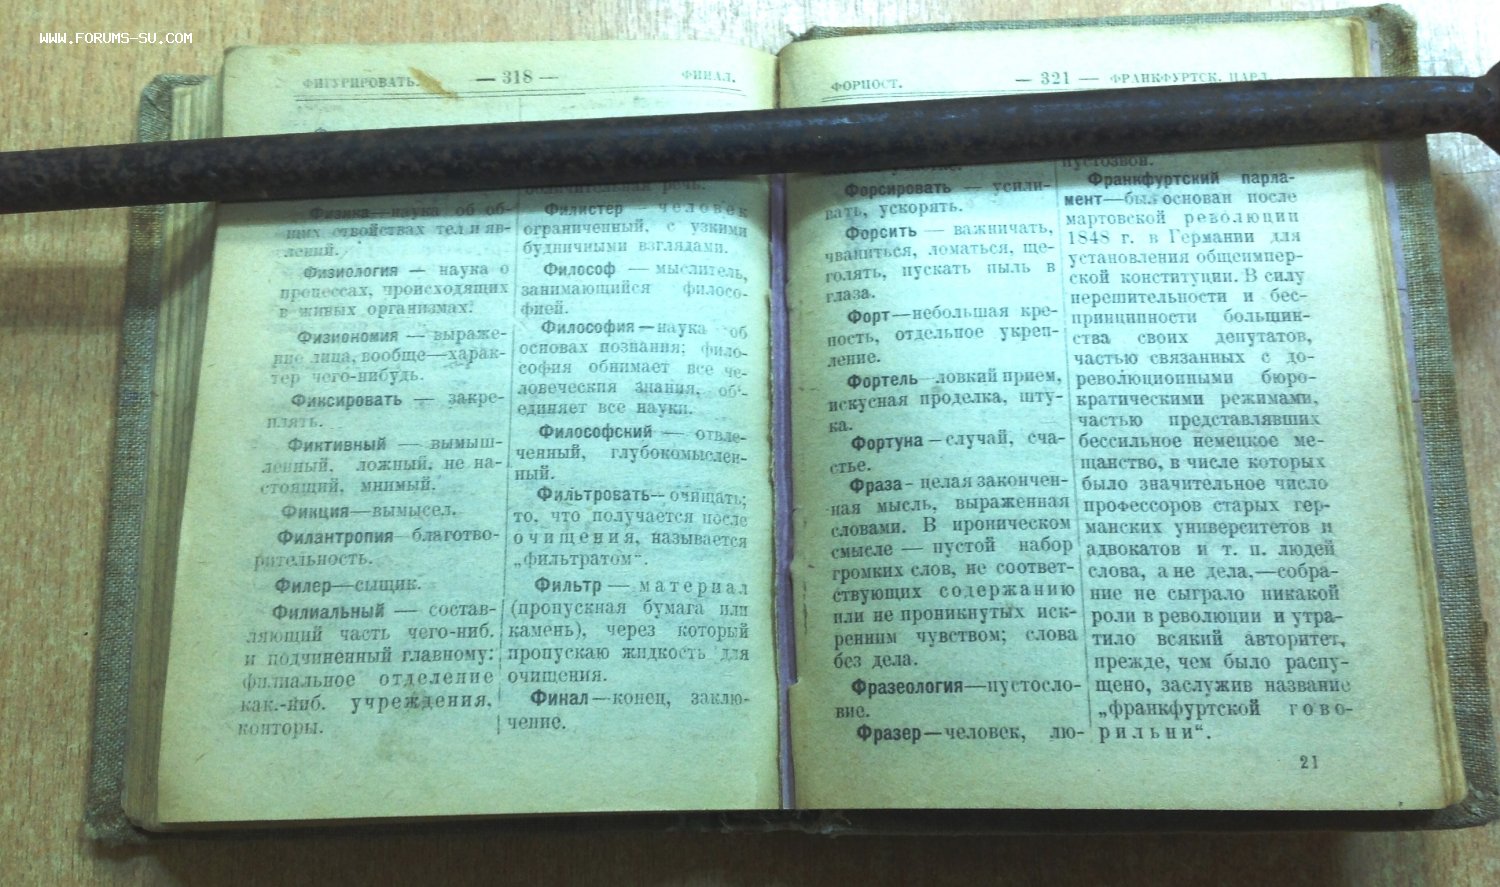 www.forums-su.com
ФИГУРИРОВАТЬ. — 318 — ФИНАЛ.
Физика—наука об об-
щих свойствах тел и яв-
лений.
Физиология — наука о
процессах, происходящих
в живых организмах.
Физиономия — выраже-
ние лица, вообще—харак-
тер чего-нибудь.
Фиксировать — закре-
плять.
Фиктивный — вымыш-
ленный, ложный, не на-
стоящий, мнимый.
Фикция—вымысел.
Филантропия—благотво-
рительность.
Филер—сыщик.
Филиальный — состав-
ляющий часть чего-ниб.
и подчиненный главному:
филиальное отделение
как.-ниб. учреждения,
конторы.
речь.
Филистер — человек
ограниченный, с узкими
будничными взглядами.
Философ — мыслитель,
занимающийся филосо-
фией.
Философия—наука об
основах познания; фило-
софия обнимает все че-
ловеческия знания, об'-
единяет все науки.
Философский — отвле-
ченный, глубокомыслен-
ный.
Фильтровать—очищать;
то, что получается после
очищения, называется
„фильтратом“.
Фильтр — материал
(пропускная бумага или
камень), через который
пропускаю жидкость для
очищения.
Финал—конец, заклю-
чение.
ФОРПОСТ. — 321 — ФРАНКФУРТСК. ПАРЛ.
Форсировать — усили-
вать, ускорять.
Форсить — важничать,
чваниться, ломаться, ще-
голять, пускать пыль в
глаза.
Форт—небольшая кре-
пость, отдельное укреп-
ление.
Фортель—ловкий прием,
искусная проделка, шту-
ка.
Фортуна—случай, сча-
стье.
Фраза- целая закончен-
ная мысль, выраженная
словами. В ироническом
смысле — пустой набор
громких слов, не соответ-
ствующих содержанию
или не проникнутых иск-
ренним чувством; слова
без дела.
Фразеология—пустосло-
вие.
Фразер—человек, лю-
пустозвон.
Франкфуртский парла-
мент—был основан после
мартовской революции
1848 г. в Германии для
установления общеимпер-
ской конституции. В силу
нерешительности и бес-
принципности большин-
ства своих депутатов,
частью связанных с до-
революционными бюро-
кратическими режимами,
частью представлявших
бессильное немецкое ме-
щанство, в числе которых
было значительное число
профессоров старых гер-
манских университетов и
адвокатов и т. п. людей
слова, а не дела,—собра-
ние не сыграло никакой
роли в революции и утра-
тило всякий авторитет,
прежде, чем было распу-
щено, заслужив название
„франкфуртской гово-
рильни“.
21